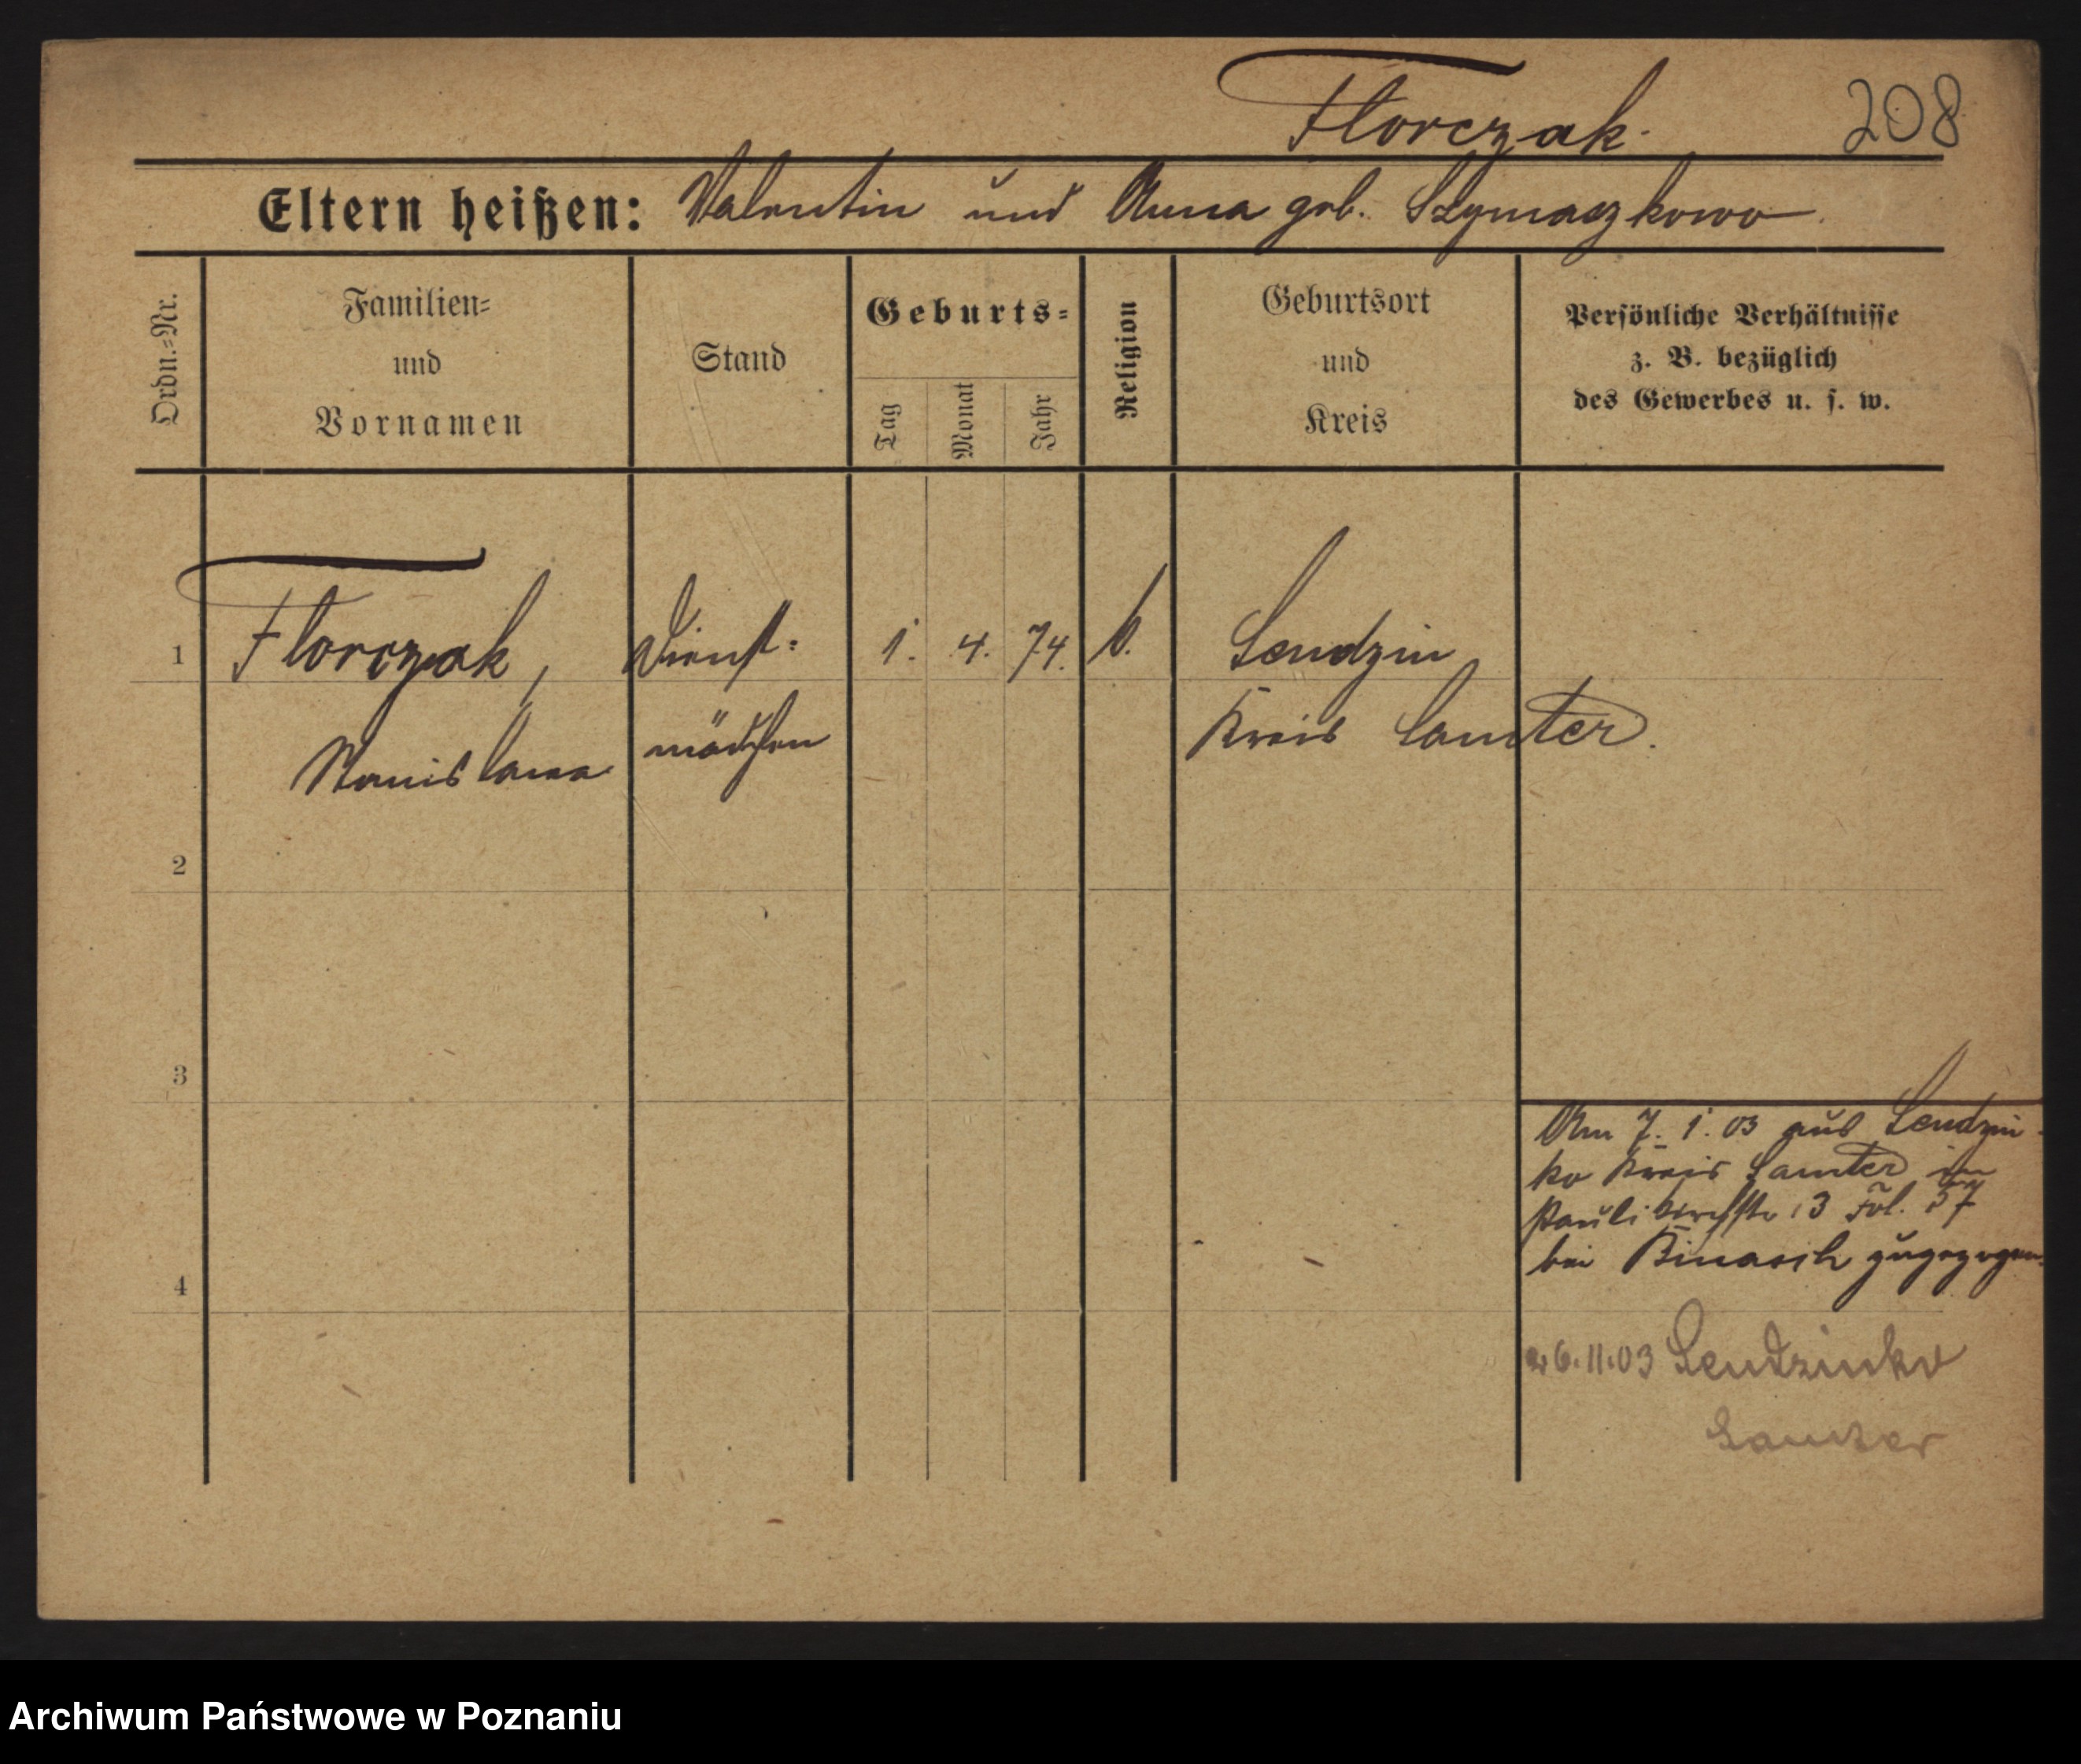 Florczak.
208
Eltern heißen: Valentin und Anna geb. Szymaczkowo.
Ordn.=Nr.
Familien=
und
Vornamen
Stand
Geburts=
Tag
Monat
Jahr
Religion
Geburtsort
und
Kreis
Persönliche Verhältnisse
z. B. bezüglich
des Gewerbes u. s. w.
1 Florczak, Dienst= 1. 4. 74. k. Sendzin
Stanislawa mädchen Kreis Samter.
2
3
Am 7. 1. 03 aus Sendzin-
ko Kreis Samter in
Paulikirchstr 3 Fol. 57
bei Binasch zugezogen
4
26.11.03 Sendzinko
Samter
Archiwum Państwowe w Poznaniu